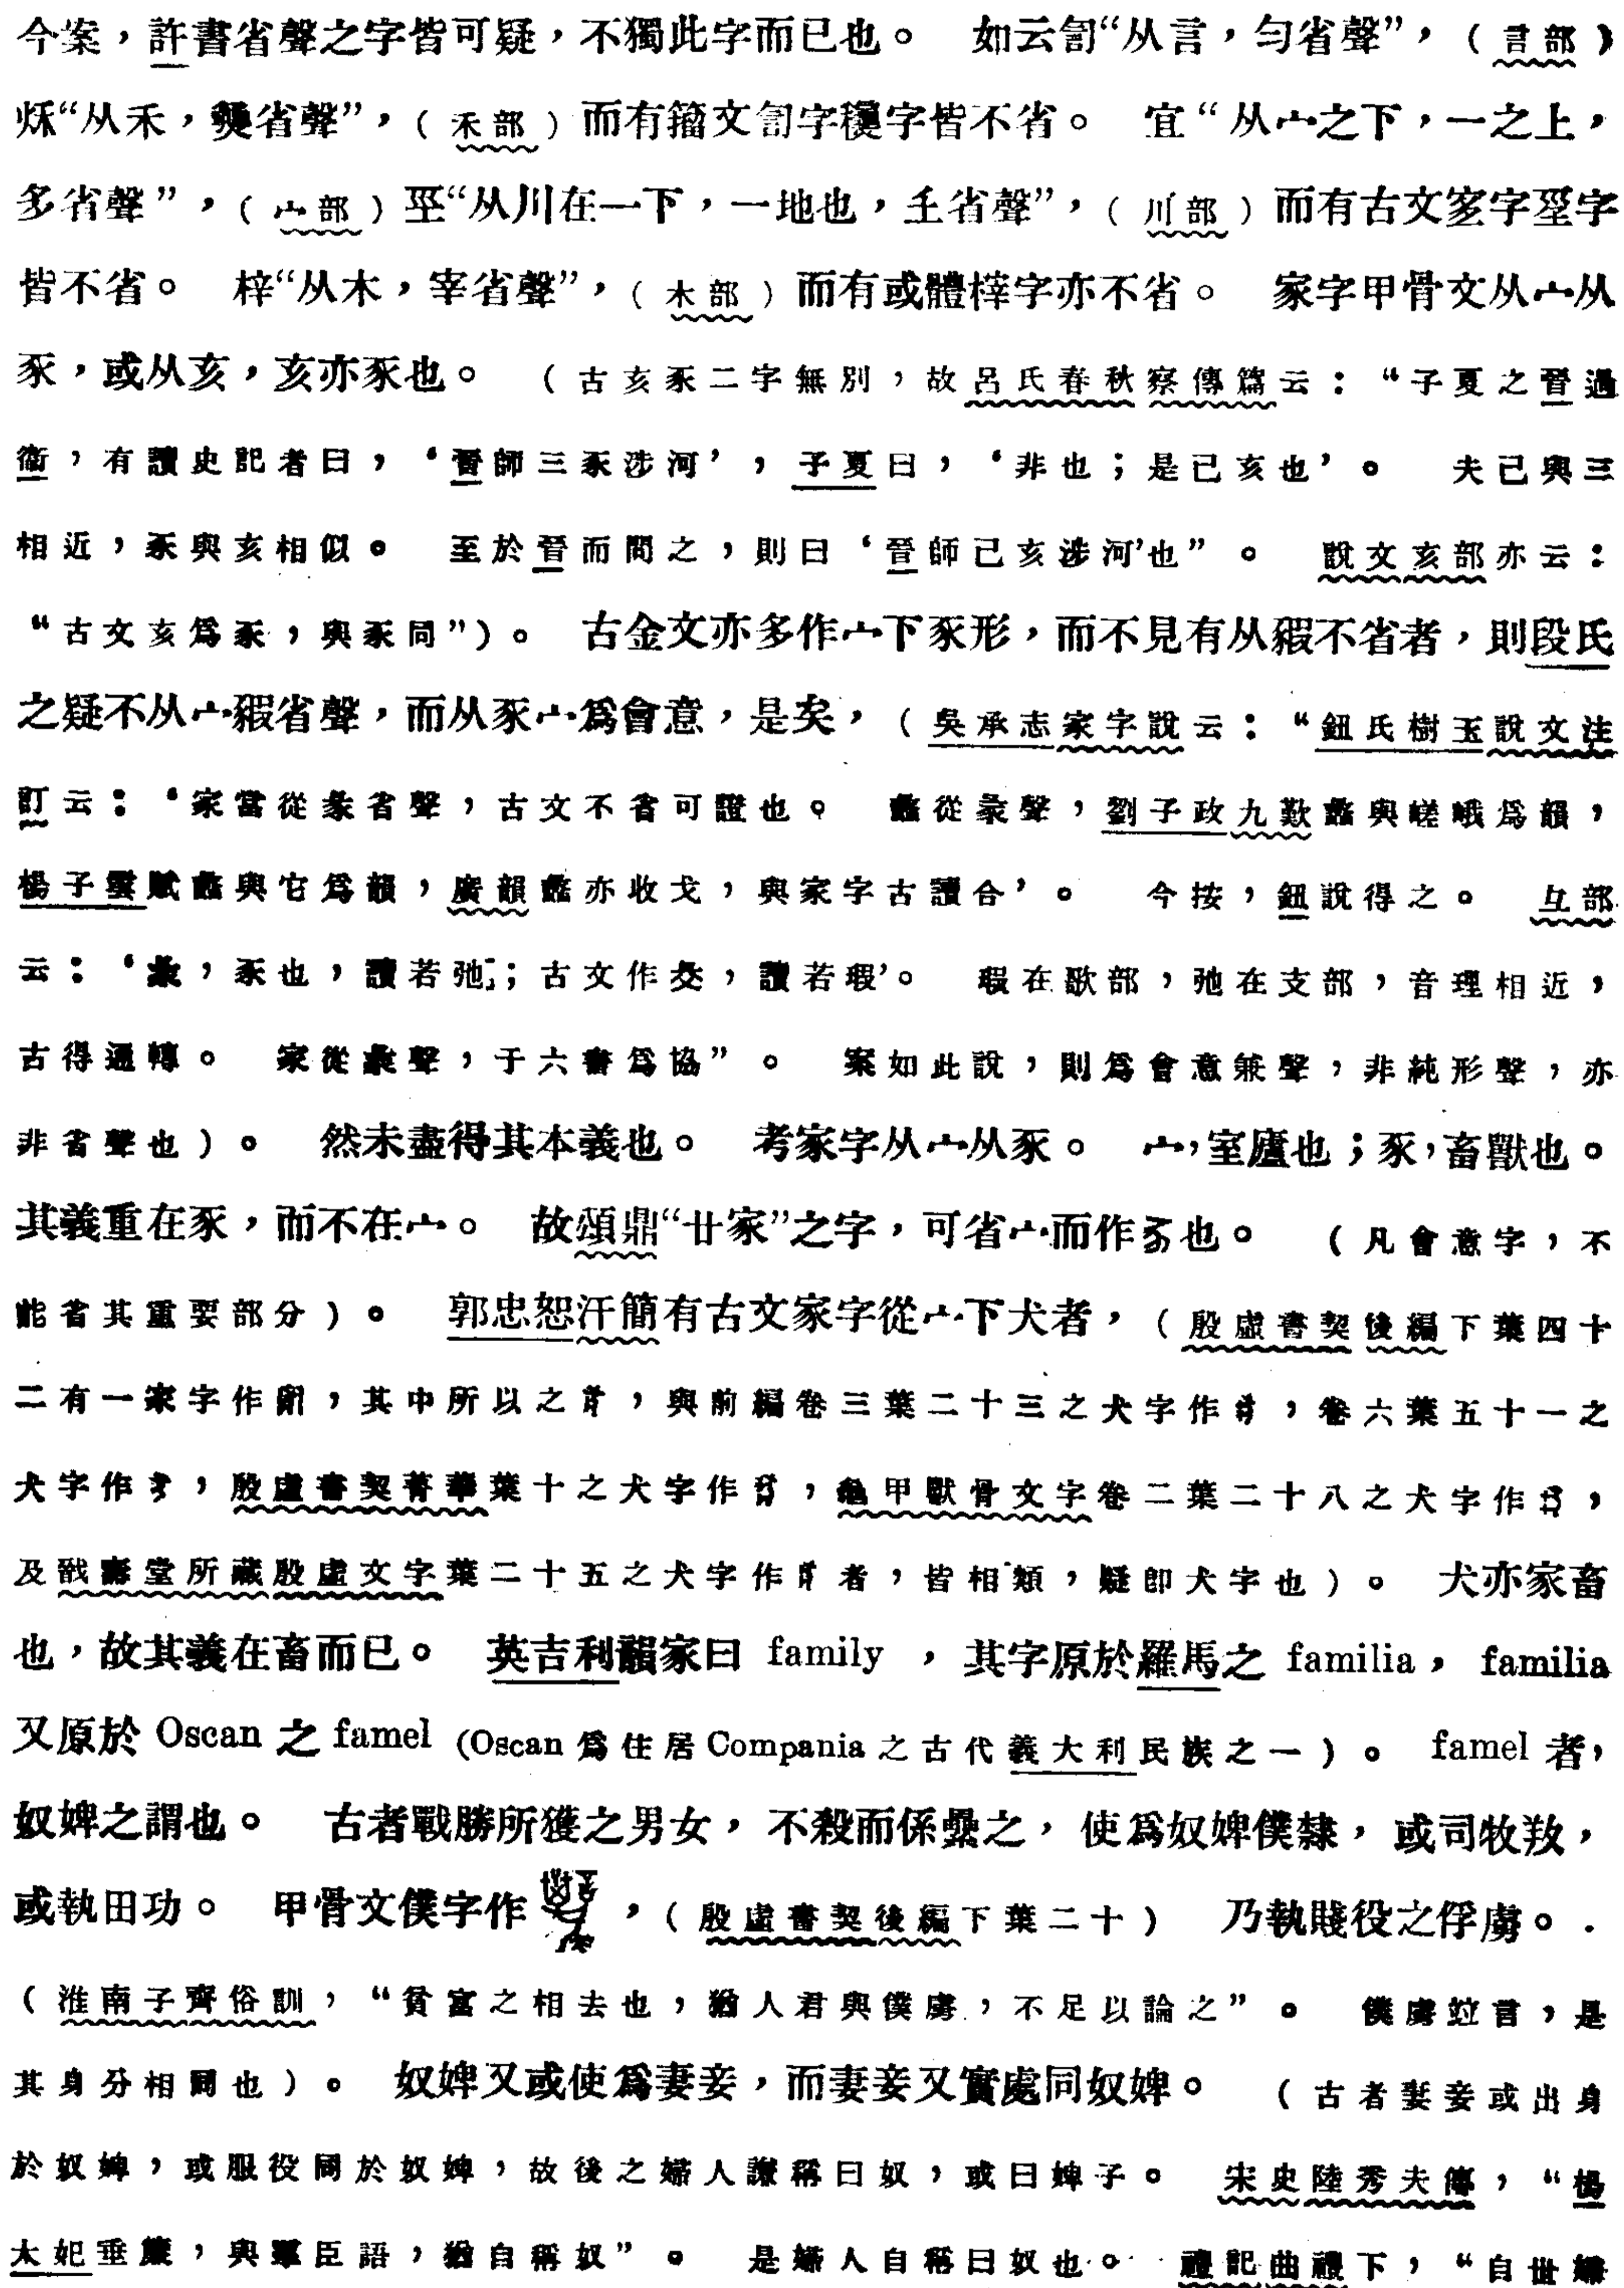 今案，許書省聲之字皆可疑，不獨此字而已也。　如云訇“从言，勻省聲”，（言部）
秌“从禾，𤒅省聲”，（禾部）而有籀文字字皆不省。　宜“从宀之下，一之上，
多省聲”，（宀部）巠“从川在一下，一地也，壬省聲”，（川部）而有古文宐字巠字
皆不省。　梓“从木，宰省聲”，（木部）而有或體榟字亦不省。　家字甲骨文从宀从
豕，或从亥，亥亦豕也。　（古亥豕二字無別，故呂氏春秋察傳篇云：“子夏之晉過
衞，有讀史記者曰，‘晉師三豕涉河’，子夏曰，‘非也；是已亥也’。　夫己與三
相近，豕與亥相似。　至於晉而問之，則曰‘晉師己亥涉河’也”。　說文亥部亦云：
“古文亥爲豕，與豕同”）。　古金文亦多作宀下豕形，而不見有从豭不省者，則段氏
之疑不从宀豭省聲，而从豕宀爲會意，是矣，（吳承志家字說云：“鈕氏樹玉說文注
訂云：‘家當從彖省聲，古文不省可證也。　蠡從彖聲，劉子政九歎蠡與嵯峨爲韻，
楊子雲賦蠡與它爲韻，廣韻蠡亦收戈，與家字古讀合’。　今按，鈕說得之。　彑部
云：‘彖，豕也，讀若弛；古文作，讀若瑕’。　瑕在歌部，弛在支部，音理相近，
古得通轉。　家從彖聲，于六書爲協”。　案如此說，則爲會意兼聲，非純形聲，亦
非省聲也）。　然未盡得其本義也。　考家字从宀从豕。　宀，室廬也；豕，畜獸也。
其義重在豕，而不在宀。　故頌鼎“廿家”之字，可省宀而作也。　（凡會意字，不
能省其重要部分）。　郭忠恕汗簡有古文家字從宀下犬者，（殷虛書契後編下葉四十
二有一家字作，其中所以之，與前編卷三葉二十三之犬字作，卷六葉五十一之
犬字作，殷虛書契菁華葉十之犬字作，龜甲獸骨文字卷二葉二十八之犬字作，
及戩壽堂所藏殷虛文字葉二十五之犬字作者，皆相類，疑卽犬字也）。　犬亦家畜
也，故其義在畜而已。　英吉利韻家曰 family ，其字原於羅馬之 familia，familia
又原於 Oscan 之 famel (Oscan 爲住居 Compania 之古代義大利民族之一）。　famel 者，
奴婢之謂也。　古者戰勝所獲之男女，不殺而係纍之，使爲奴婢僕隸，或司牧㪅，
或執田功。　甲骨文僕字作，（殷虛書契後編下葉二十）　乃執賤役之俘虜。
（淮南子齊俗訓，“貧富之相去也，猶人君與僕虜，不足以論之”。　僕虜竝言，是
其身分相同也）。　奴婢又或使爲妻妾，而妻妾又實處同奴婢。　（古者妻妾或出身
於奴婢，或服役同於奴婢，故後之婦人謙稱曰奴，或曰婢子。　宋史陸秀夫傳，“楊
太妃垂簾，與羣臣語，猶自稱奴”。　是婦人自稱曰奴也。　禮記曲禮下，“自世婦